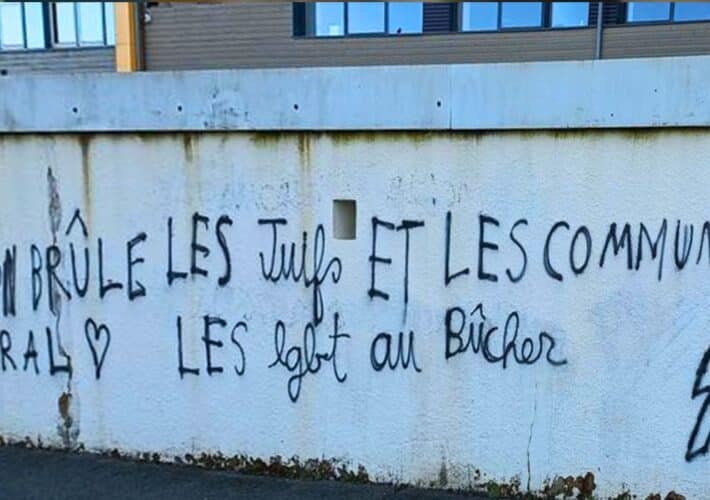 BRÛLE LES Juifs ET LES COMMUN
RAL ♡ LES lgbt au Bûcher